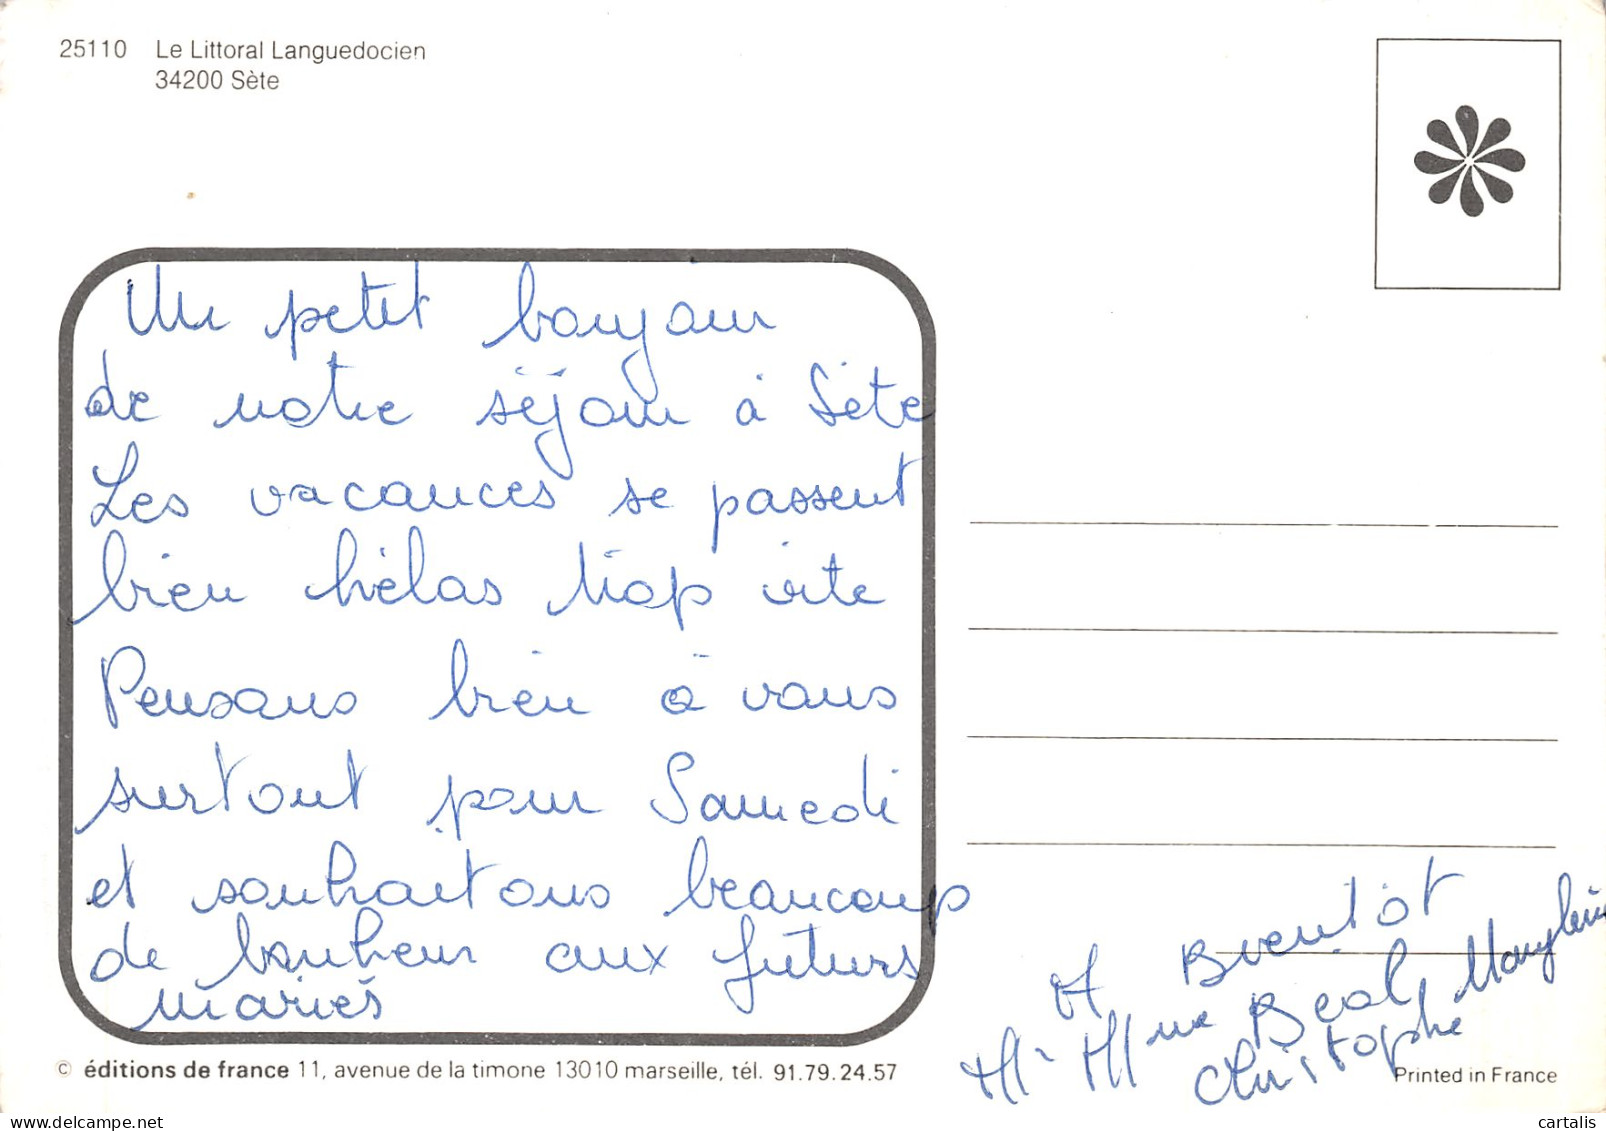 25110 Le Littoral Languedocien
34200 Sète
Un petit bonjour
de notre séjour à Sète
Les vacances se passent
bien hélas trop vite
Pensons bien à vous
surtout pour Samedi
et souhaitons beaucoup
de bonheur aux futurs
mariés
A Bientôt
Mr Mme
Christophe
© éditions de france 11, avenue de la timone 13010 marseille, tél. 91.79.24.57
Printed in France
cartalis